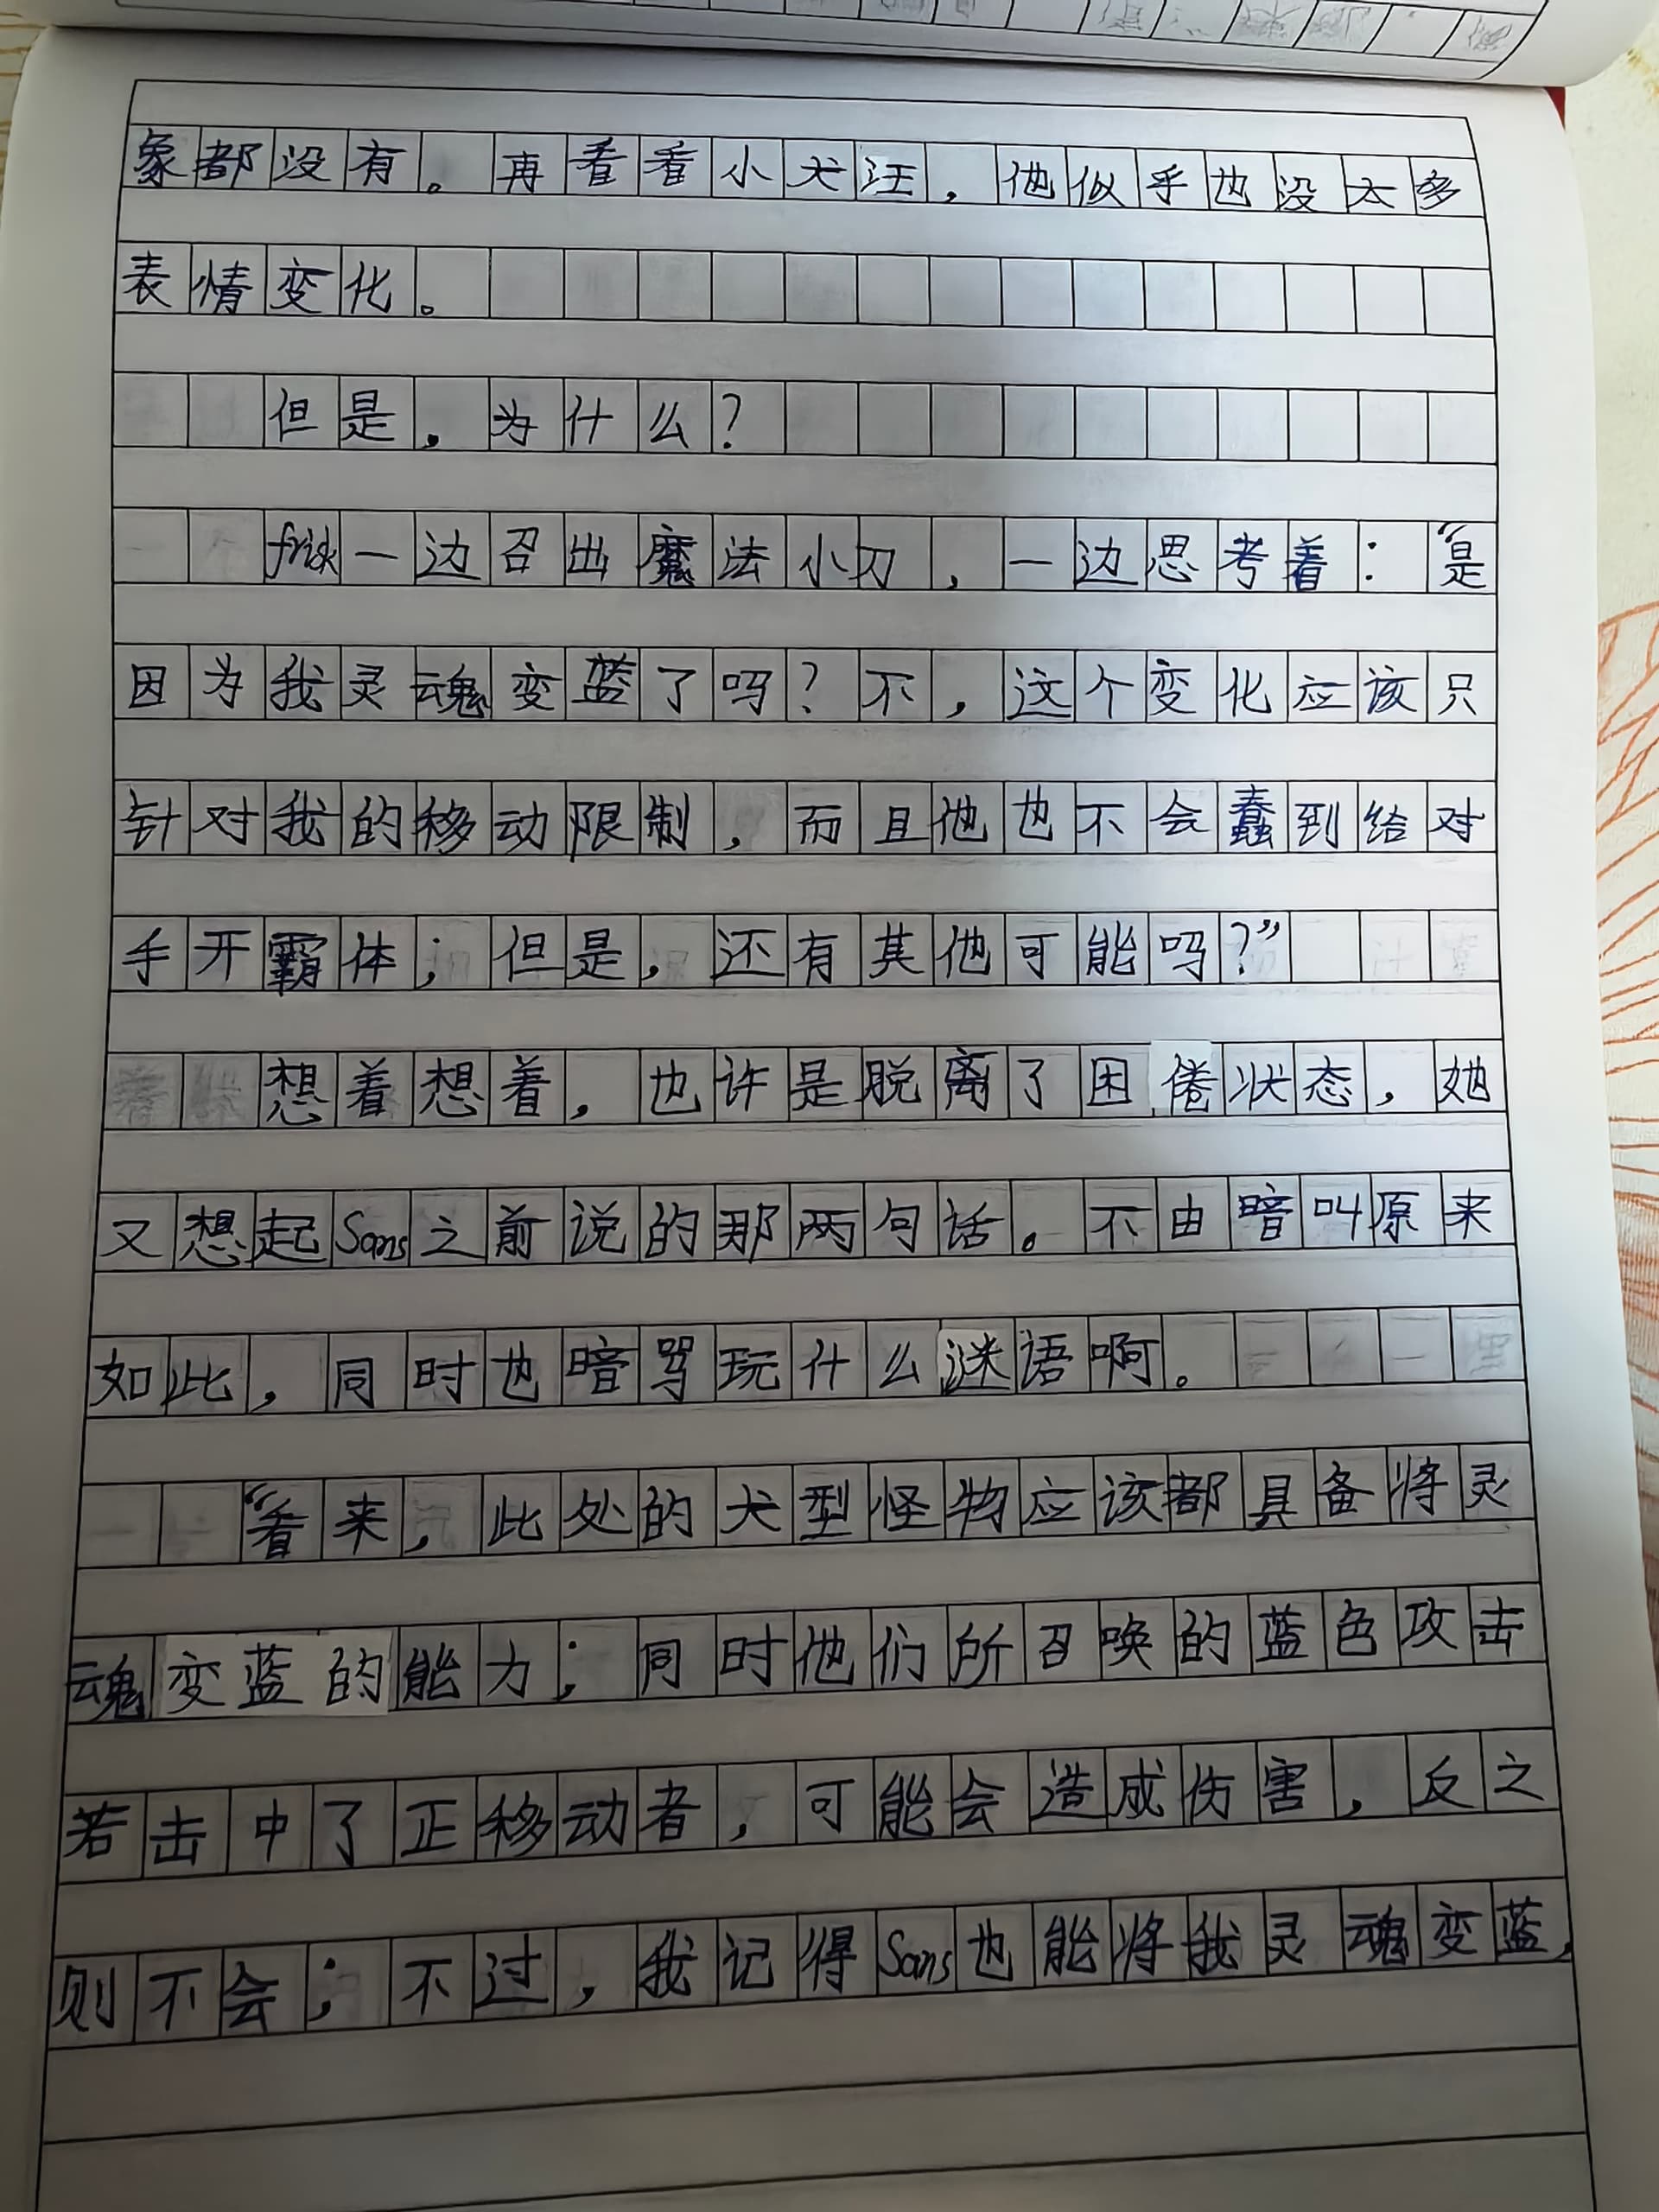 象都没有。再看看小犬汪，他似乎也没太多
表情变化。
但是，为什么？
frisk一边召出魔法小刀，一边思考着：“是
因为我灵魂变蓝了吗？不，这个变化应该只
针对我的移动限制，而且他也不会蠢到给对
手开霸体；但是，还有其他可能吗？”
想着想着，也许是脱离了困倦状态，她
又想起Sans之前说的那两句话。不由暗叫原来
如此，同时也暗骂玩什么谜语啊。
“看来，此处的犬型怪物应该都具备将灵
魂变蓝的能力；同时他们所召唤的蓝色攻击
若击中了正移动者，可能会造成伤害，反之
则不会；不过，我记得Sans也能将我灵魂变蓝，